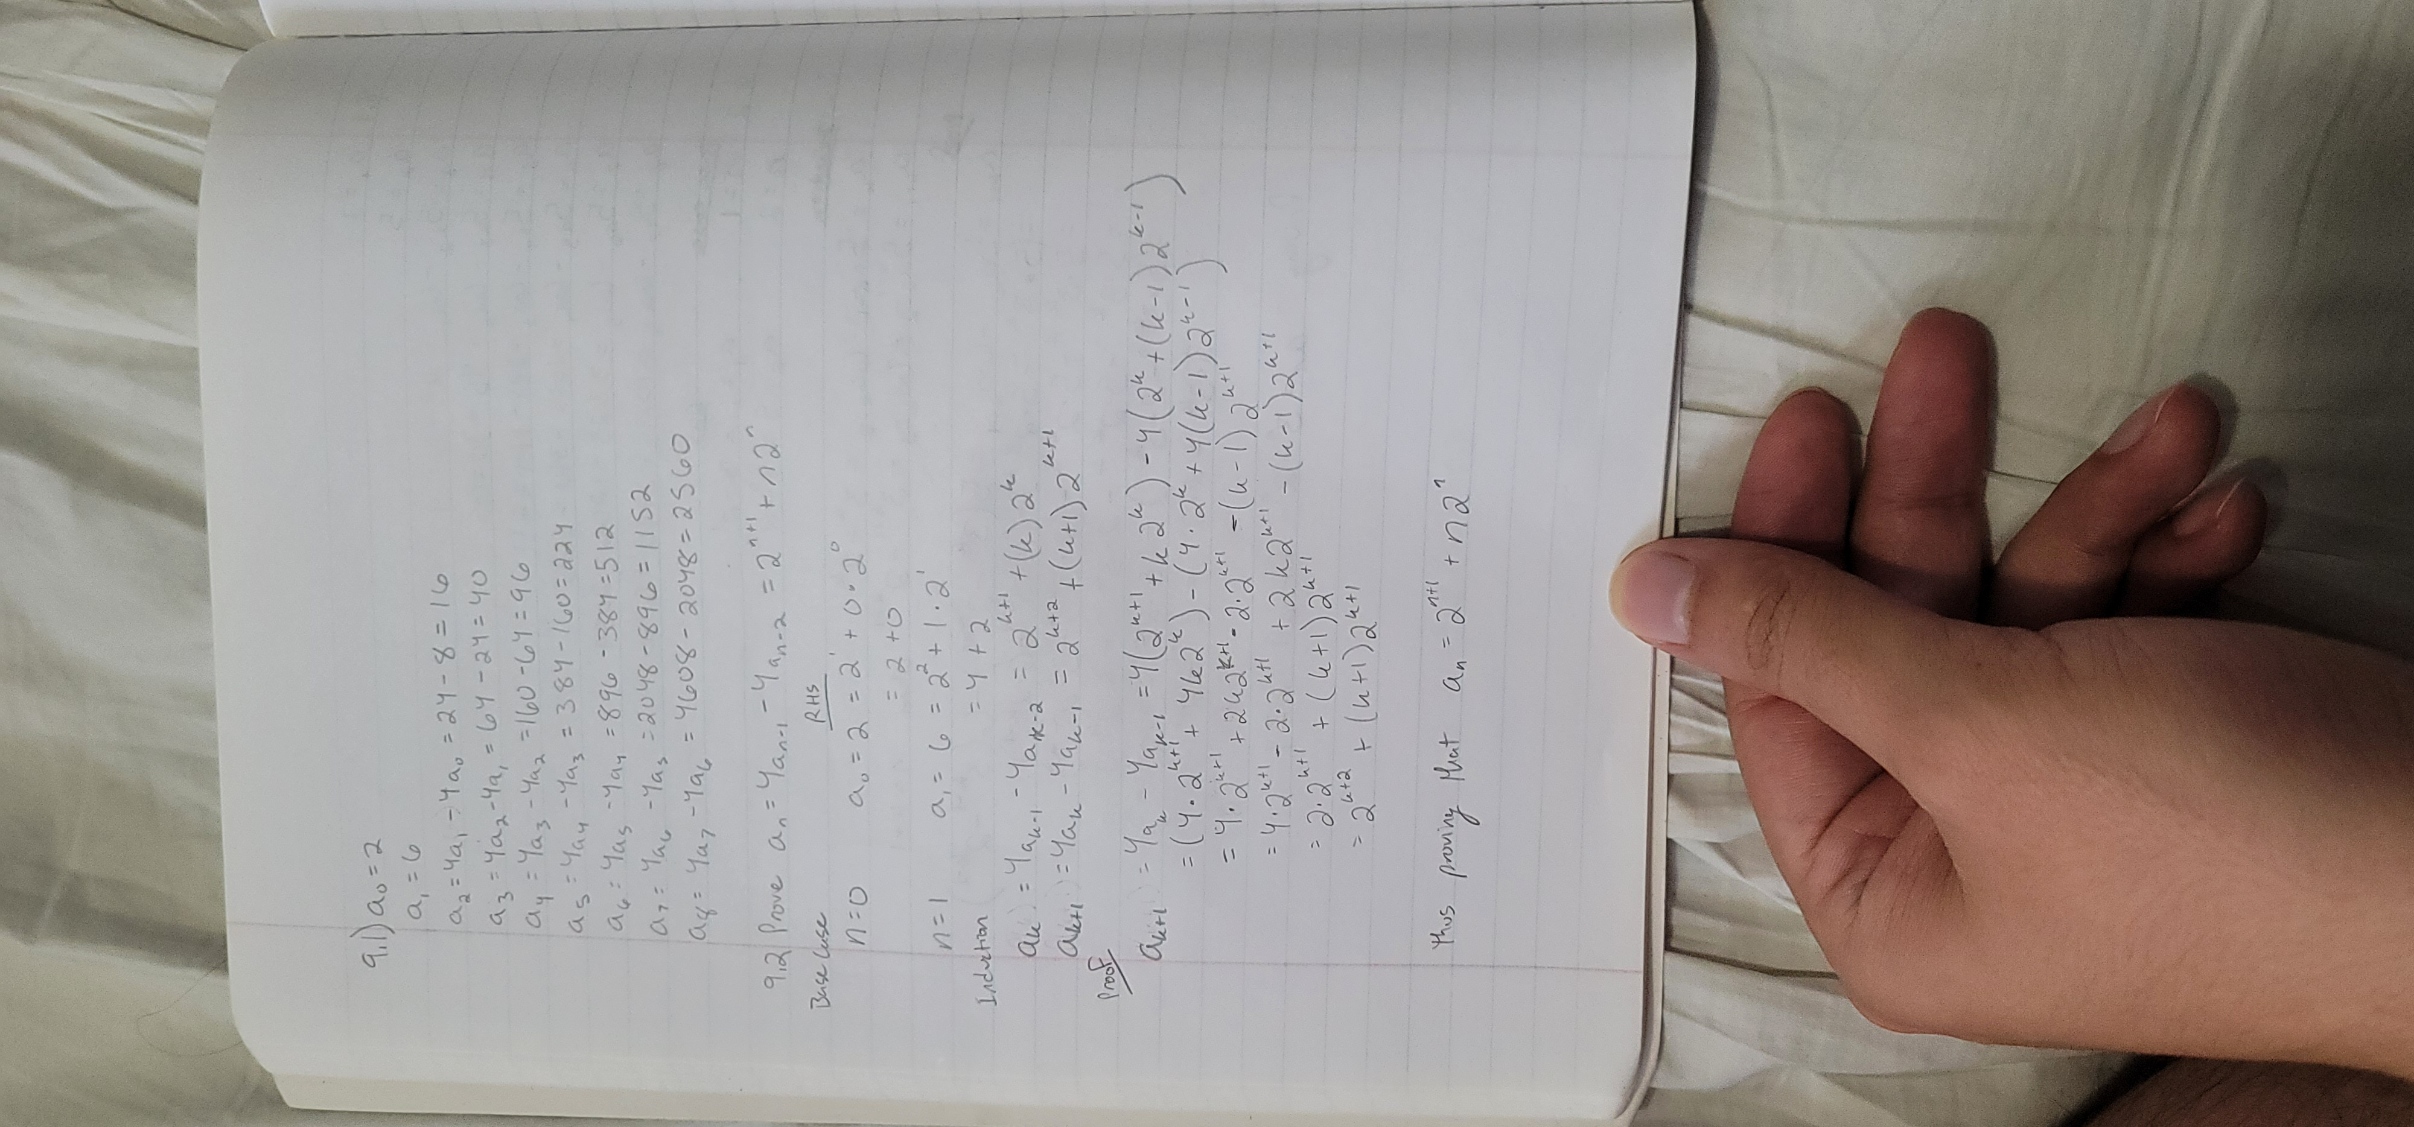 9.1) a₀ = 2
a₁ = 6
a₂ = 4a₁ - 4a₀ = 24 - 8 = 16
a₃ = 4a₂ - 4a₁ = 64 - 24 = 40
a₄ = 4a₃ - 4a₂ = 160 - 64 = 96
a₅ = 4a₄ - 4a₃ = 384 - 160 = 224
a₆ = 4a₅ - 4a₄ = 896 - 384 = 512
a₇ = 4a₆ - 4a₅ = 2048 - 896 = 1152
a₈ = 4a₇ - 4a₆ = 4608 - 2048 = 2560
9.2 Prove aₙ = 4aₙ₋₁ - 4aₙ₋₂ = 2ⁿ⁺¹ + n2ⁿ
Base Case RHS
n=0 a₀ = 2 = 2¹ + 0·2⁰
= 2 + 0
n=1 a₁ = 6 = 2² + 1·2¹
= 4 + 2
Induction
aₖ = 4aₖ₋₁ - 4aₖ₋₂ = 2ᵏ⁺¹ + (k)2ᵏ
aₖ₊₁ = 4aₖ - 4aₖ₋₁ = 2ᵏ⁺² + (k+1)2ᵏ⁺¹
Proof
aₖ₊₁ = 4aₖ - 4aₖ₋₁ = 4(2ᵏ⁺¹ + k2ᵏ) - 4(2ᵏ + (k-1)2ᵏ⁻¹)
= (4·2ᵏ⁺¹ + 4k2ᵏ) - (4·2ᵏ + 4(k-1)2ᵏ⁻¹)
= 4·2ᵏ⁺¹ + 2k2ᵏ⁺¹ - 2·2ᵏ⁺¹ - (k-1)2ᵏ⁺¹
= 4·2ᵏ⁺¹ - 2·2ᵏ⁺¹ + 2k2ᵏ⁺¹ - (k-1)2ᵏ⁺¹
= 2·2ᵏ⁺¹ + (k+1)2ᵏ⁺¹
= 2ᵏ⁺² + (k+1)2ᵏ⁺¹
Thus proving that aₙ = 2ⁿ⁺¹ + n2ⁿ